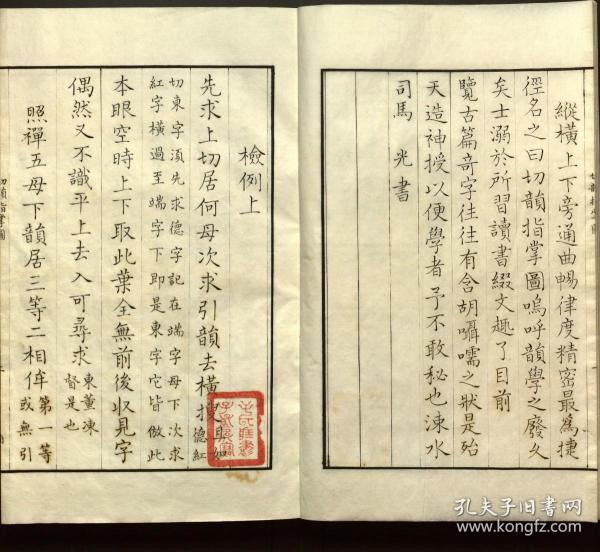 縱横上下旁通曲暢律度精密最爲捷
徑名之曰切韻指掌圖嗚呼韻學之廢久
矣士溺於所習讀書綴文趣了目前
覽古篇奇字往往有含胡囁嚅之狀是殆
天造神授以便學者予不敢秘也涑水
司馬光書
檢例上
先求上切居何母次求引韻去横搜
德紅
切東字須先求德字記在端字母下次求
紅字横過至端字下即是東字它皆倣此
本眼空時上下取此葉全無前後収見字
偶然又不識平上去入可尋求
東董凍
督是也
照禪五母下韻居三等二相侔
第一等
或無引
孔夫子旧书网
www.kongfz.com